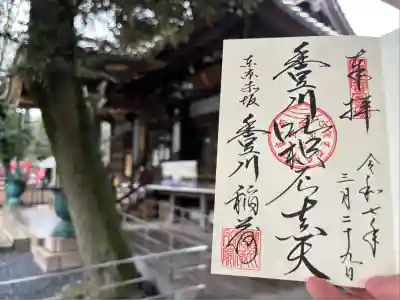 奉拝
令和七年
三月二十九日
豊川吒枳尼真天
東京赤坂
豊川稲荷